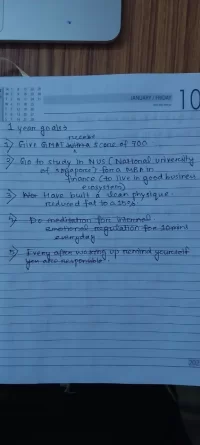 JANUARY / FRIDAY
10
1 year goals
1) Give GMAT with a score of 700
2) Go to study in NUS (National university
of singapore) for a MBA in
finance (to live in good business
ecosystem)
3) Have built a lean physique.
reduced fat to a 15%
4) Do meditation for internal
emotional regulation for 10 mins
everyday
5) Every after waking up remind yourself
you are responsible.